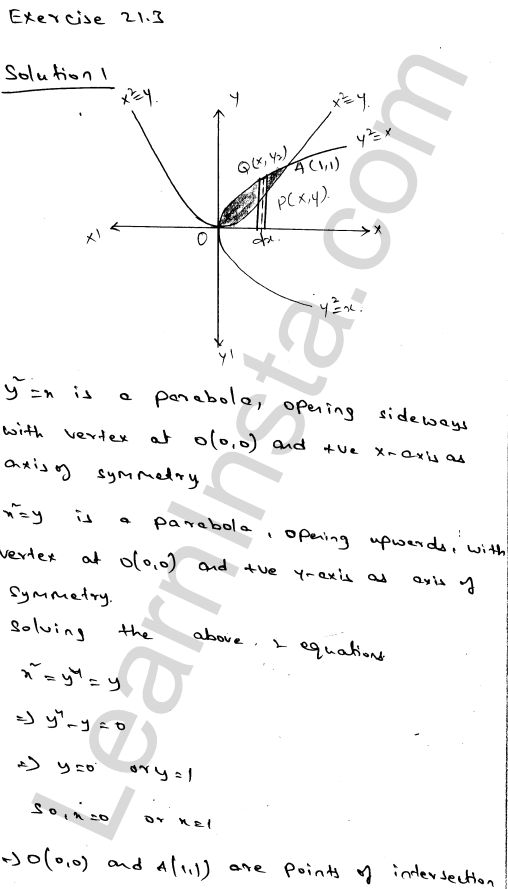 Exercise 21.3
Solution 1
x²=y.
Y
x²=y.
y²=x
Q(x, y₂)
A(1,1)
P(x,y).
X1
O
dx.
X
y²=x.
Y1
y²=x is a parabola, opening sideways
with vertex at O(0,0) and +ve x-axis as
axis of symmetry
x²=y is a parabola, opening upwards, with
vertex at O(0,0) and +ve y-axis as axis of
symmetry.
Solving the above 2 equations
x² = y⁴ = y
=> y⁴ - y = 0
=> y=0 or y=1
So, x=0 or x=1
=> O(0,0) and A(1,1) are points of intersection
LearnInsta.com